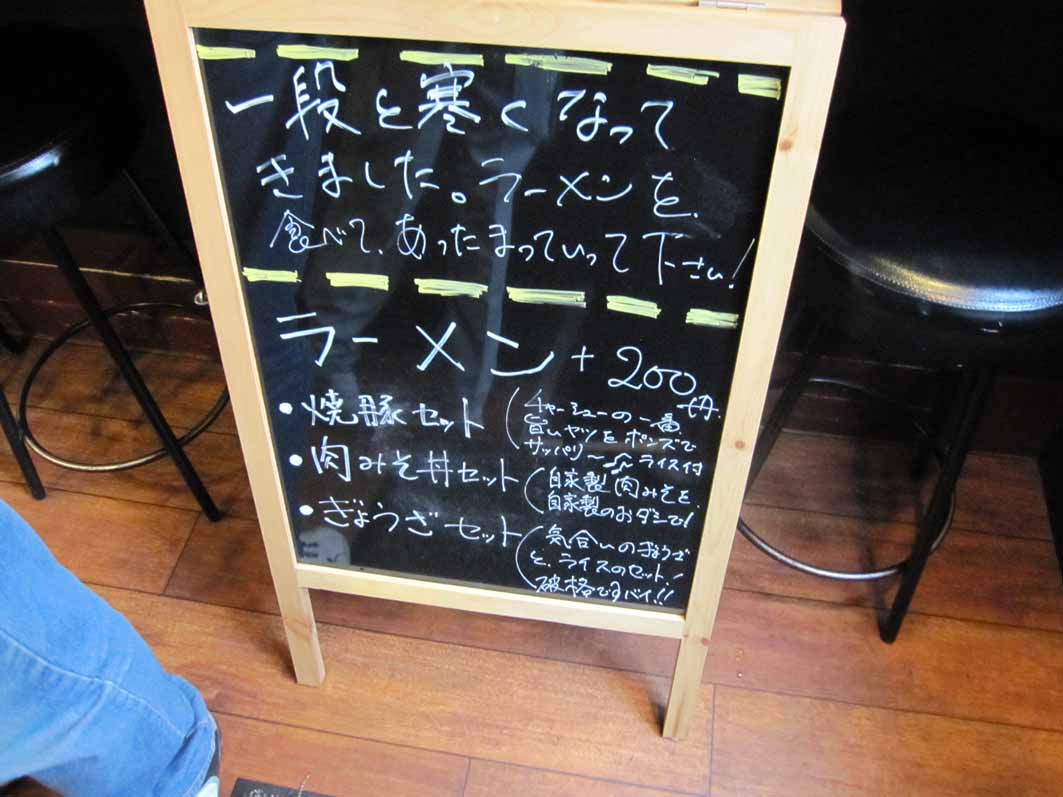 一段と寒くなって
きました。ラーメンを、
食べて、あったまっていって下さい!
ラーメン+200円
・焼豚セット(チャーシューの一番
旨いヤツをポンズで
サッパリ〜♪ライス付
・肉みそ丼セット(自家製肉みそを、
自家製のおダシで!
・ぎょうざセット(気合いのぎょうざ
と、ライスのセット!
破格ですバイ!!